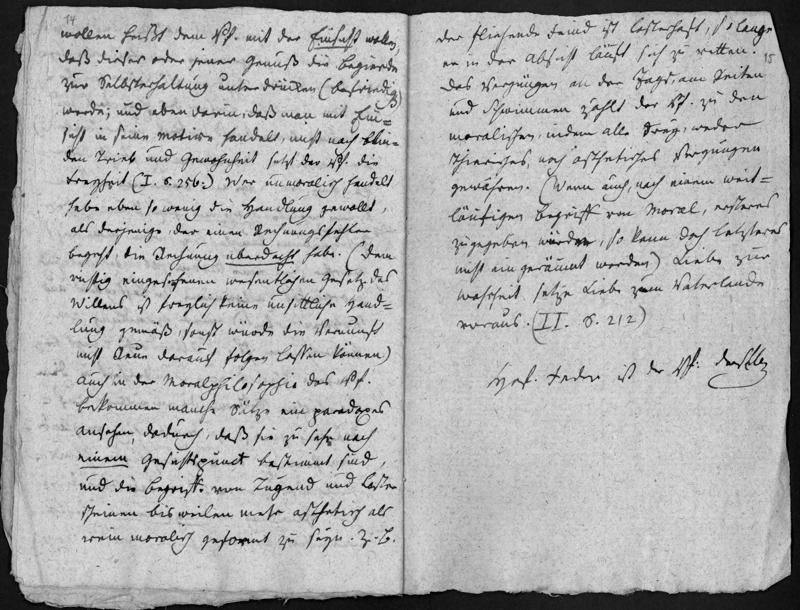 14
wollen heißt dem Vf. mit der Einsicht wollen,
daß dieser oder jener Genuß die Begierde
zur Selbsterhaltung unterdrücken (befriedig)
werde; und eben darin, daß man mit Ein=
sicht in seine Motive handelt, nicht nach blin=
den Trieb und Gewohnheit setzt der Vf. die
Freyheit (I. S. 256.) Wer unmoralisch handelt
habe eben so wenig die Handlung gewollt,
als derjenige, der einen Rechnungsfehler
begeht, die Rechnung überdacht habe. (Dem
richtig eingesehenen wesentlichen Gesetz des
Willens ist freylich keine unsittliche Hand=
lung gemäß, sonst würde die Vernunft
nicht Reue darauf folgen lassen können)
Auch in der Moralphilosophie des Vf.
bekommen manche Sätze ein paradoxes
Ansehn, dadurch, daß sie zu sehr nach
einem Gesichtspunct bestimmt sind,
und die Begriffe von Tugend und Laster
scheinen bisweilen mehr ästhetisch als
rein moralisch geformt zu seyn. Z. B.
der fliehende Feind ist lasterhaft, so lange
er in der Absicht läuft sich zu retten.
15
Das Vergnügen an der Jagd, am Reiten
und Schwimmen zählt der Vf. zu den
moralischen, indem alle drey, weder
thierisches, noch ästhetisches Vergnügen
gewähren. (Wenn auch, nach einem weit=
läufigen Begriff von Moral, ersteres
zugegeben würde, so kann doch letzteres
nicht eingeräumt werden) Liebe zur
Wahrheit setze Liebe zum Vaterlande
voraus. (II. S. 212)
Hof. Feder ist der Vf.